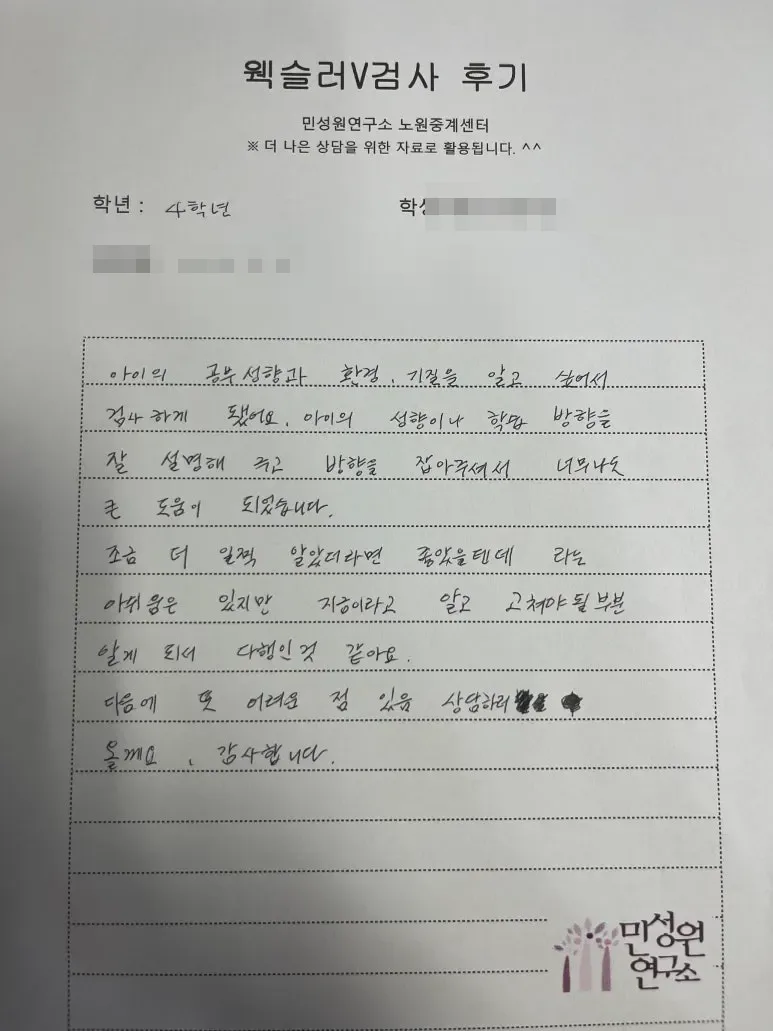 웩슬러V검사 후기
민성원연구소 노원중계센터
※ 더 나은 상담을 위한 자료로 활용됩니다. ^^
학년 : 4학년
아이의 공부성향과 환경, 기질을 알고 싶어서
검사하게 됐어요. 아이의 성향이나 학답 방향을
잘 설명해 주고 방향을 잡아주셔서 너무나도
큰 도움이 되었습니다.
조금 더 일찍 알았더라면 좋았을텐데 라는
아쉬움은 있지만 지금이라고 알고 고쳐야 될 부분
알게 되서 다행인것 같아요.
다음에 또 어려운 점 있음 상담하러
올께요. 감사합니다.
민성원
연구소